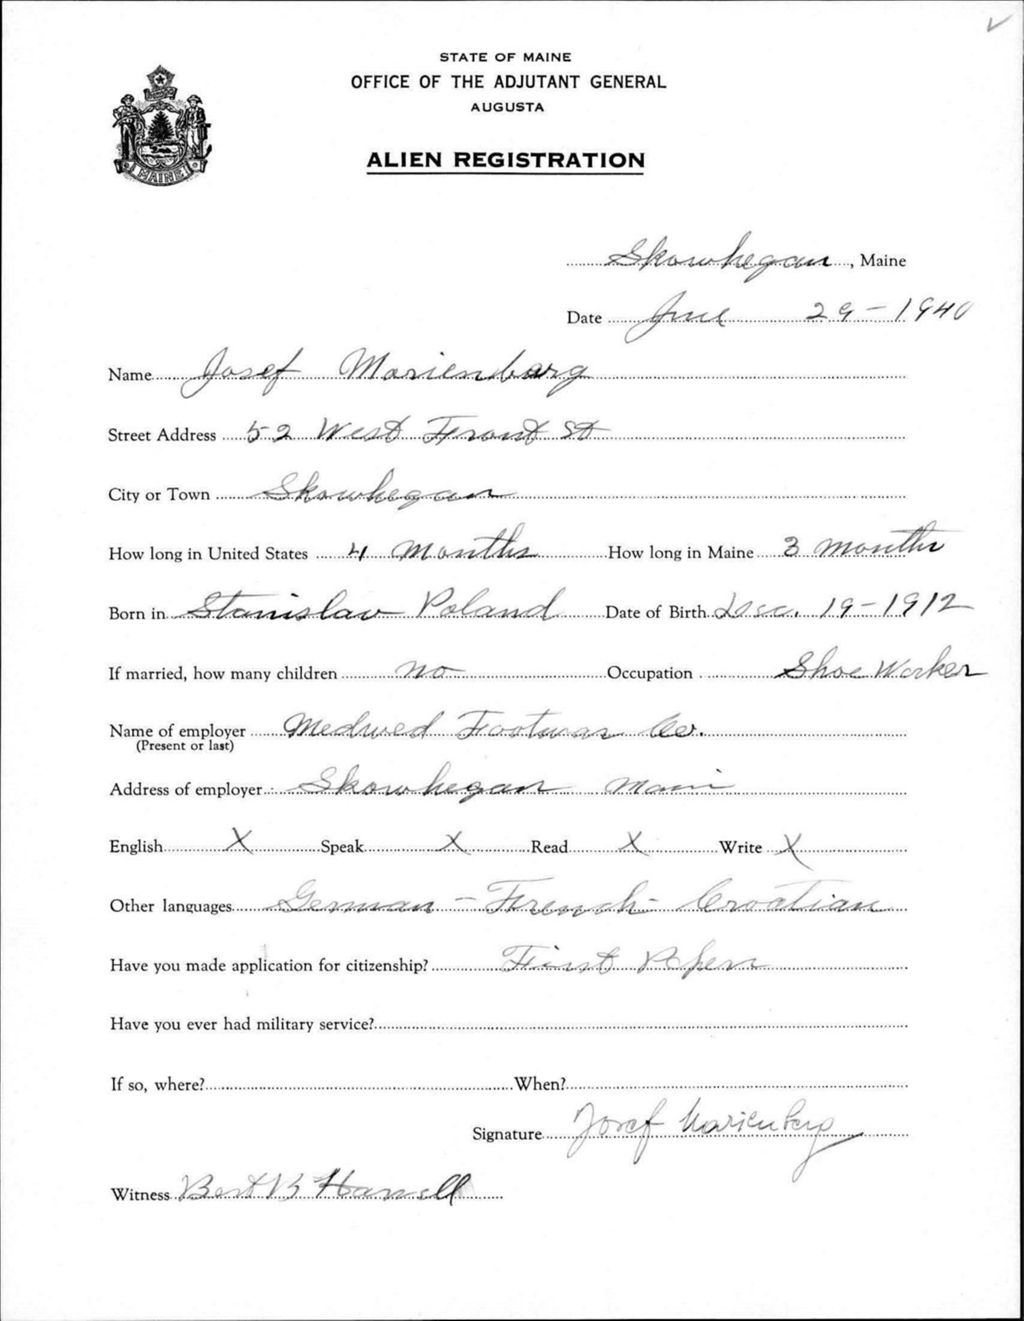 STATE OF MAINE
OFFICE OF THE ADJUTANT GENERAL
AUGUSTA
ALIEN REGISTRATION
MAINE
Skowhegan, Maine
Date June 29-1940
Name Josef Marienberg
Street Address 52 West Front St
City or Town Skowhegan
How long in United States 4 Months How long in Maine 3 Months
Born in Stanislaw Poland Date of Birth Dec. 19-1912
If married, how many children no Occupation Shoe Worker
Name of employer Medwed Footwear Co.
(Present or last)
Address of employer Skowhegan Main
English X Speak X Read X Write X
Other languages German - French - Croatian
Have you made application for citizenship? First Papers
Have you ever had military service?
If so, where? When?
Signature Josef Marienberg
Witness Bert B